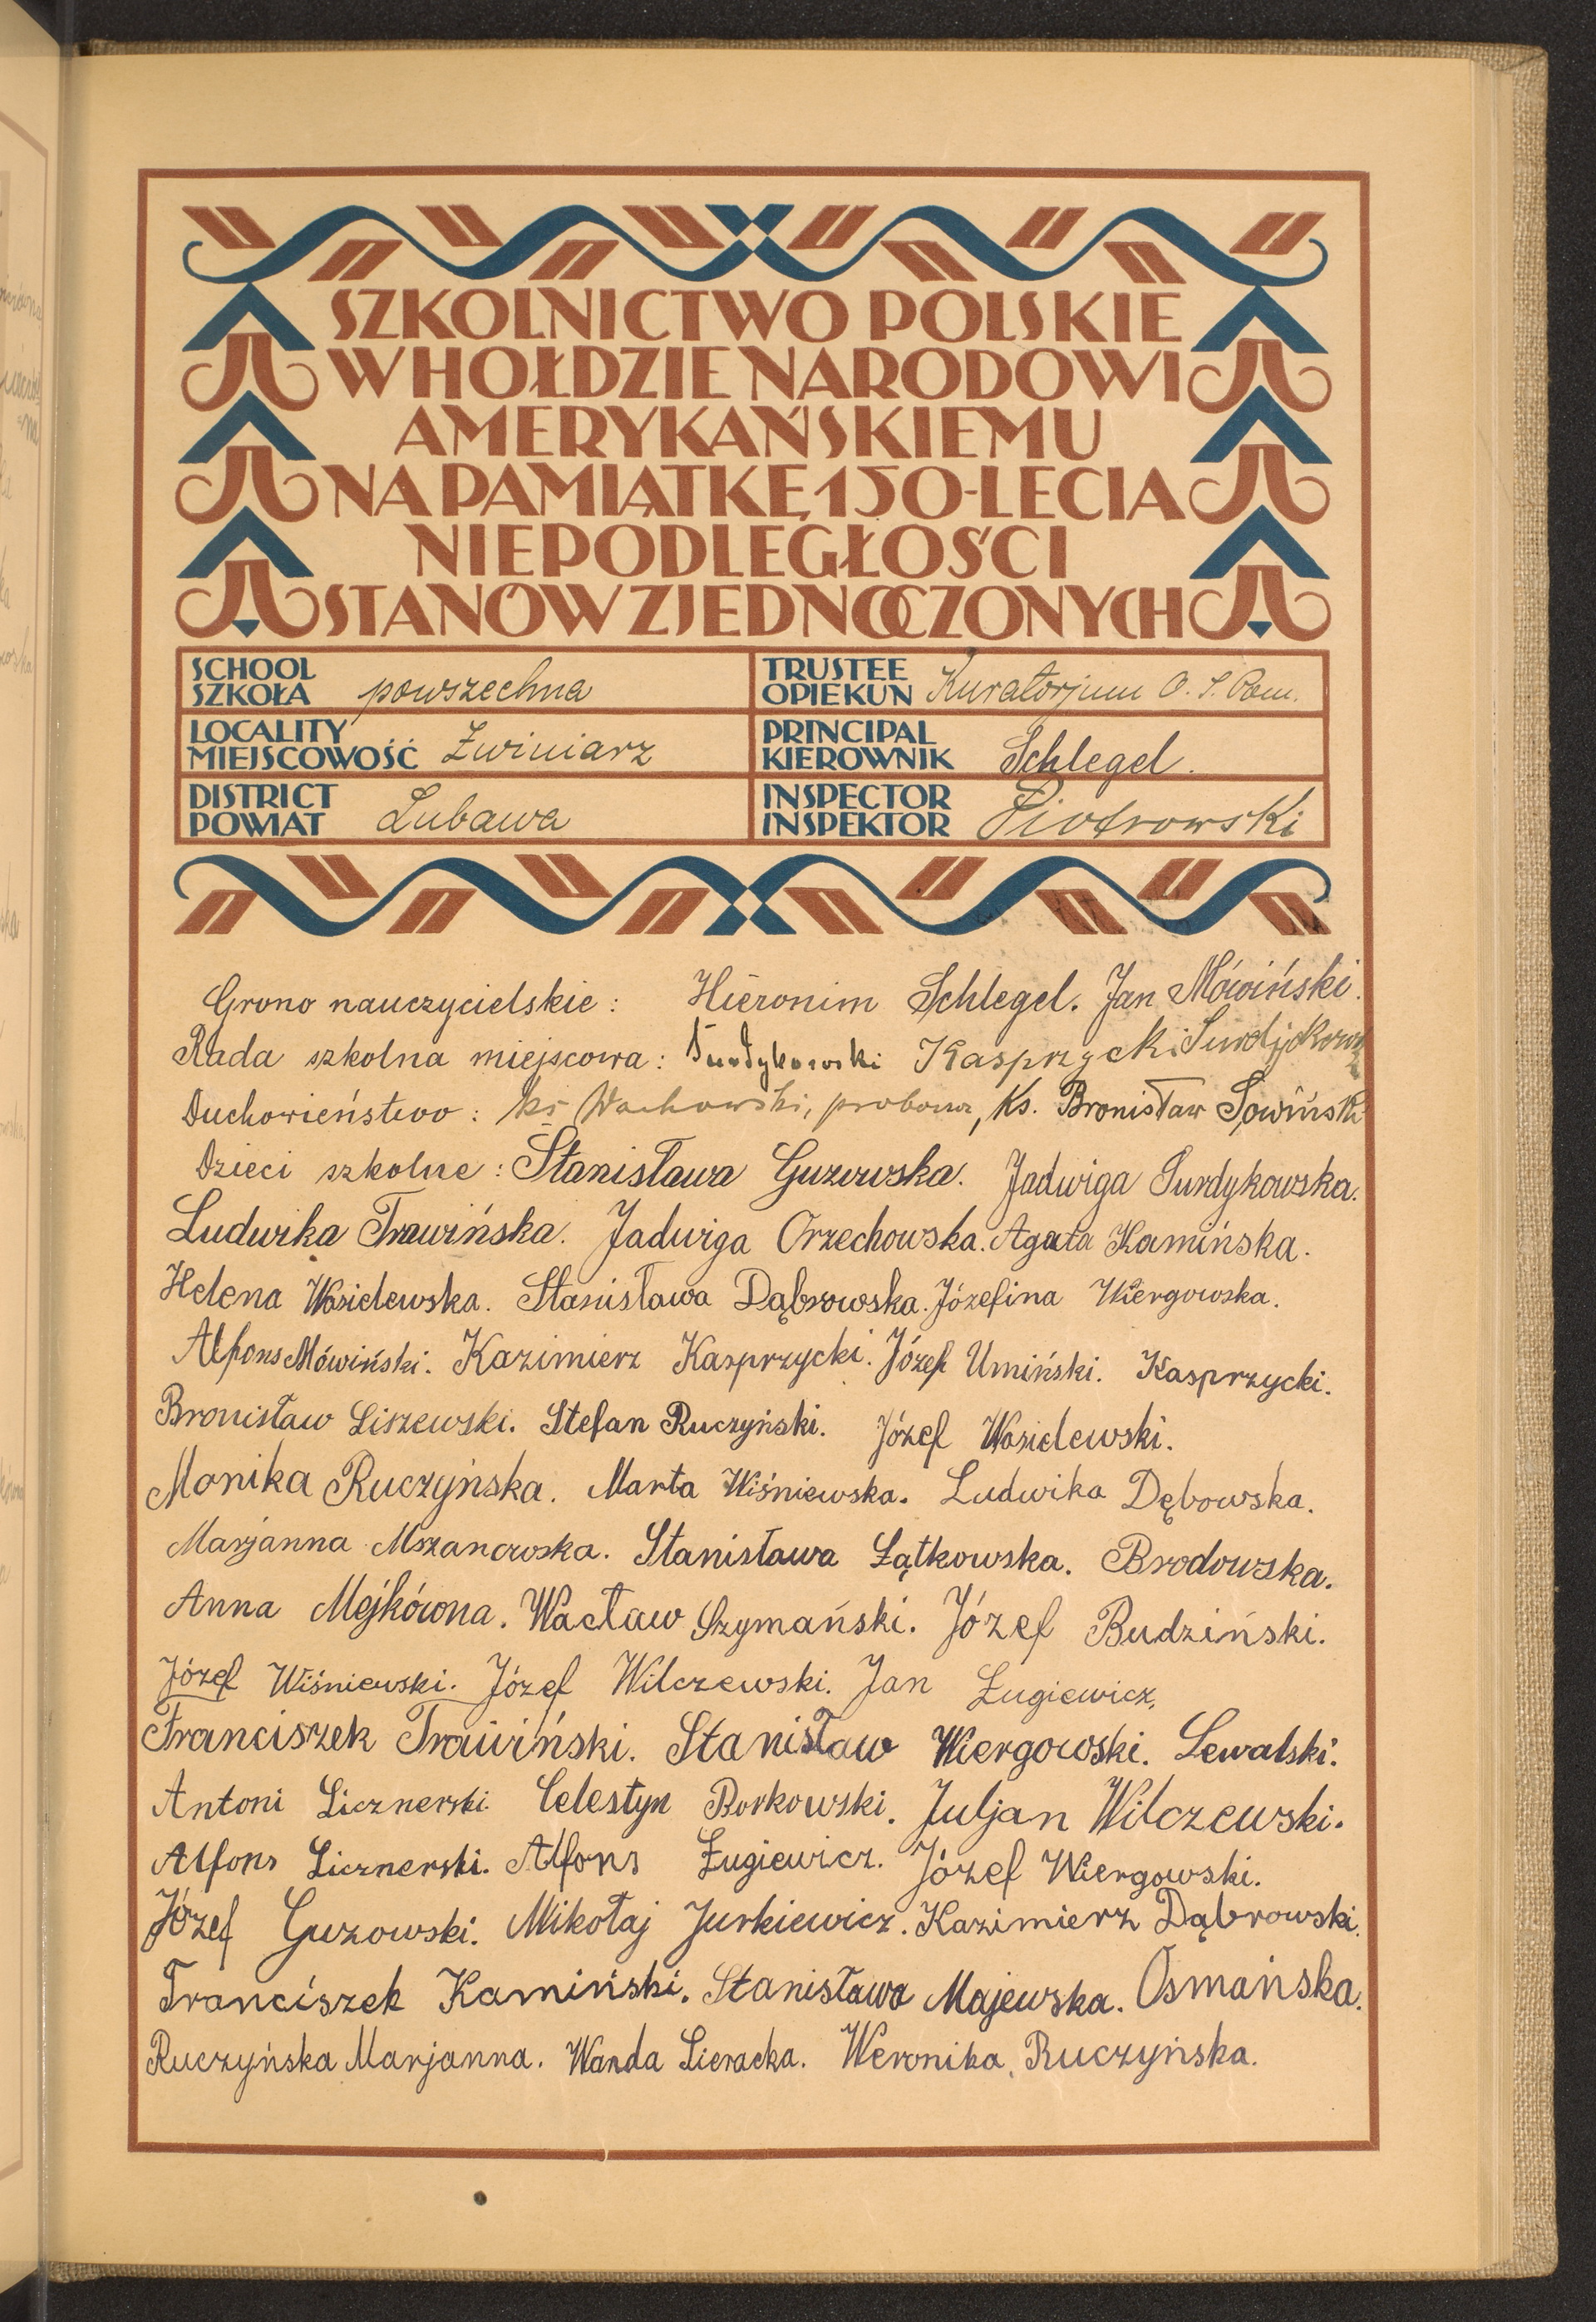 SZKOLNICTWO POLSKIE
W HOŁDZIE NARODOWI
AMERYKAŃSKIEMU
NA PAMIĄTKĘ 150-LECIA
NIEPODLEGŁOŚCI
STANÓW ZJEDNOCZONYCH
SCHOOL
SZKOŁA powszechna
TRUSTEE
OPIEKUN Kuratorjum O. S. Pom.
LOCALITY
MIEJSCOWOŚĆ Zwiniarz
PRINCIPAL
KIEROWNIK Schlegel.
DISTRICT
POWIAT Lubawa
INSPECTOR
INSPEKTOR Piotrowski
Grono nauczycielskie: Hieronim Schlegel. Jan Mówiński.
Rada szkolna miejscowa: Surdykowski Kasprzycki
Duchowieństwo: ks Wachowski, proboszcz, Ks. Bronisław Sowiński
Dzieci szkolne: Stanisława Guzowska. Jadwiga Surdykowska.
Ludwika Trawińska. Jadwiga Orzechowska. Agata Kamińska.
Helena Wasielewska. Stanisława Dąbrowska. Józefina Wiergowska.
Alfons Mówiński. Kazimierz Kasprzycki. Józef Umiński. Kasprzycki.
Bronisław Liszewski. Stefan Ruczyński. Józef Wasielewski.
Monika Ruczyńska. Marta Wiśniewska. Ludwika Dębowska.
Marjanna Mszanowska. Stanisława Łątkowska. Brodowska.
Anna Mejkówna. Wacław Szymański. Józef Budziński.
Józef Wiśniewski. Józef Wilczewski. Jan Ługiewicz.
Franciszek Trawiński. Stanisław Wiergowski. Lewalski.
Antoni Licznerski. Celestyn Borkowski. Juljan Wilczewski.
Alfons Licznerski. Alfons Ługiewicz. Józef Wiergowski.
Józef Guzowski. Mikołaj Jurkiewicz. Kazimierz Dąbrowski.
Franciszek Kamiński. Stanisława Majewska. Osmańska.
Ruczyńska Marjanna. Wanda Sieracka. Weronika Ruczyńska.